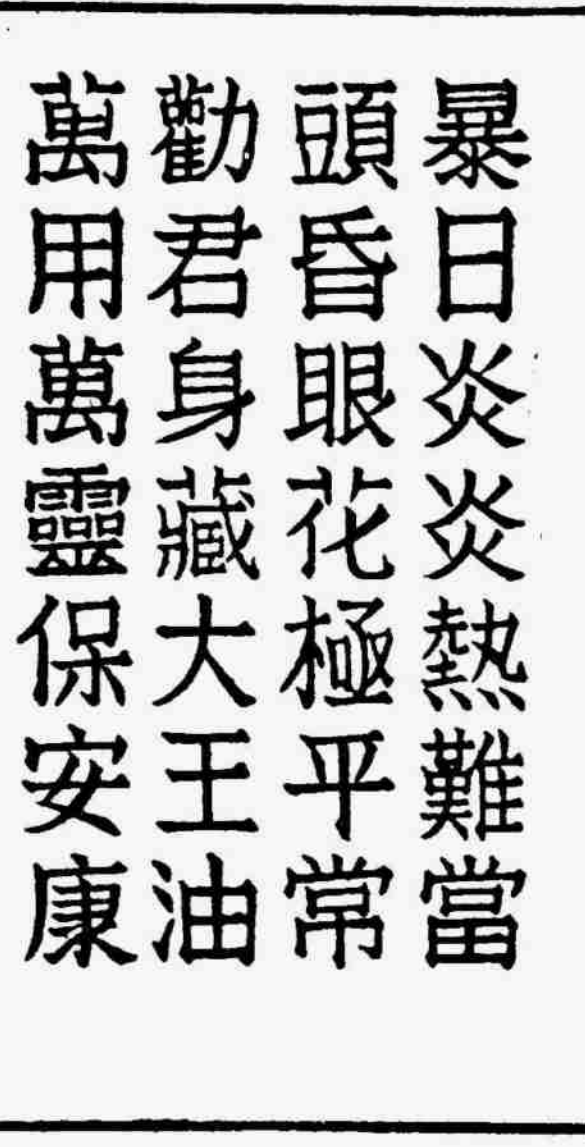 暴日炎炎熱難當
頭昏眼花極平常
勸君身藏大王油
萬用萬靈保安康